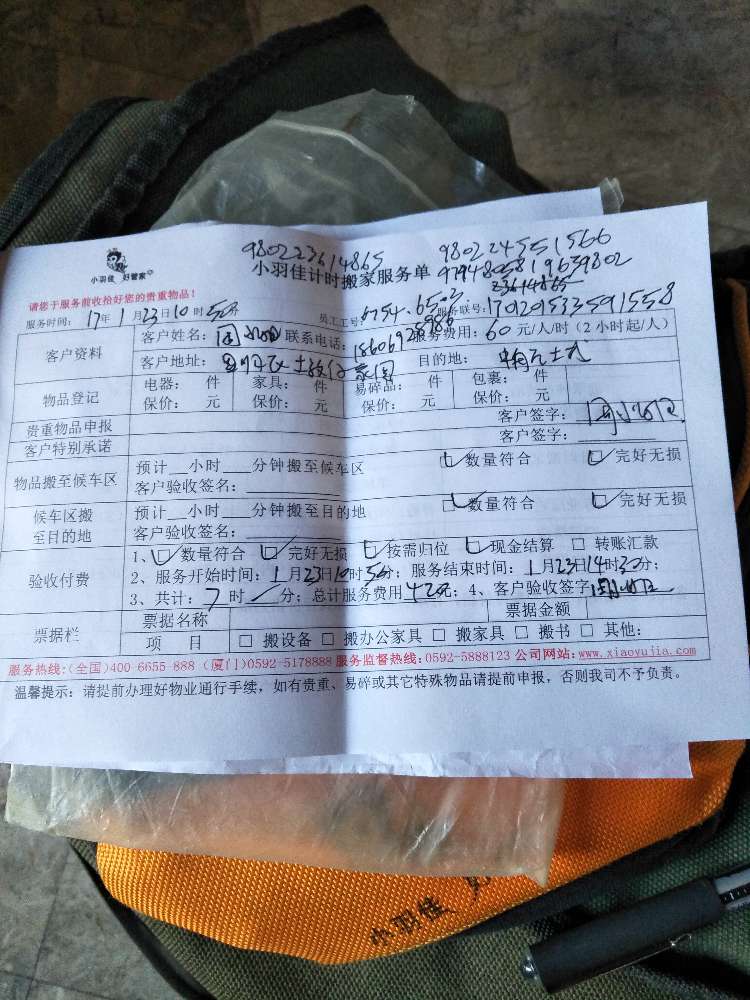 980223614865 9802245515​66
小羽佳 好管家
小羽佳计时搬家服务单 979480581​9639802
23614865
请您于服务前收拾好您的贵重物品!
服务时间: 17年1月23日10时50分 员工工号: 6754.6503 服务联号: 170129533591558
客户资料 客户姓名: 联系电话: 18606928986 服务费用: 60元/人/时(2小时起/人)
客户地址: 目的地:
物品登记 电器: 件 家具: 件 易碎品: 件 包裹: 件
保价: 元 保价: 元 保价: 元 保价: 元
贵重物品申报 客户签字:
客户特别承诺 客户签字:
物品搬至候车区 预计__小时___分钟搬至候车区 数量符合 完好无损
客户验收签名:
候车区搬至目的地 预计__小时___分钟搬至目的地 数量符合 完好无损
客户验收签名:
验收付费 1、数量符合 完好无损 按需归位 现金结算 □ 转账汇款
2、服务开始时间: 1月23日10时50分; 服务结束时间: 1月23日14时30分;
3、共计: 7时/分; 总计服务费用420元; 4、客户验收签字
票据栏 票据名称 票据金额
项 目 □ 搬设备 □ 搬办公家具 □ 搬家具 □ 搬书 □ 其他:
服务热线:(全国)400-6655-888 (厦门)0592-5178888 服务监督热线:0592-5888123 公司网站:www.xiaoyujia.com
温馨提示: 请提前办理好物业通行手续, 如有贵重、易碎或其它特殊物品请提前申报, 否则我司不予负责。
小羽佳